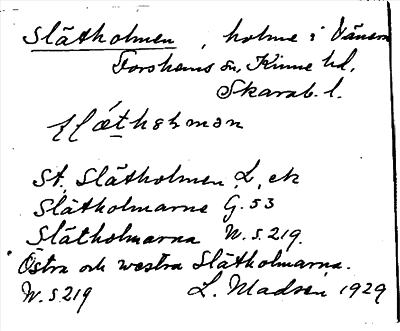 Slätholmen, holme i Vänern
Forshems sn, Kinne hd,
Skarab. l.
St. Slätholmen L. ek
Slätholmarne G. 53
Slätholmarna W. s. 219.
Östra och westra Slätholmarna.
W. s. 219 L. Madsen 1929